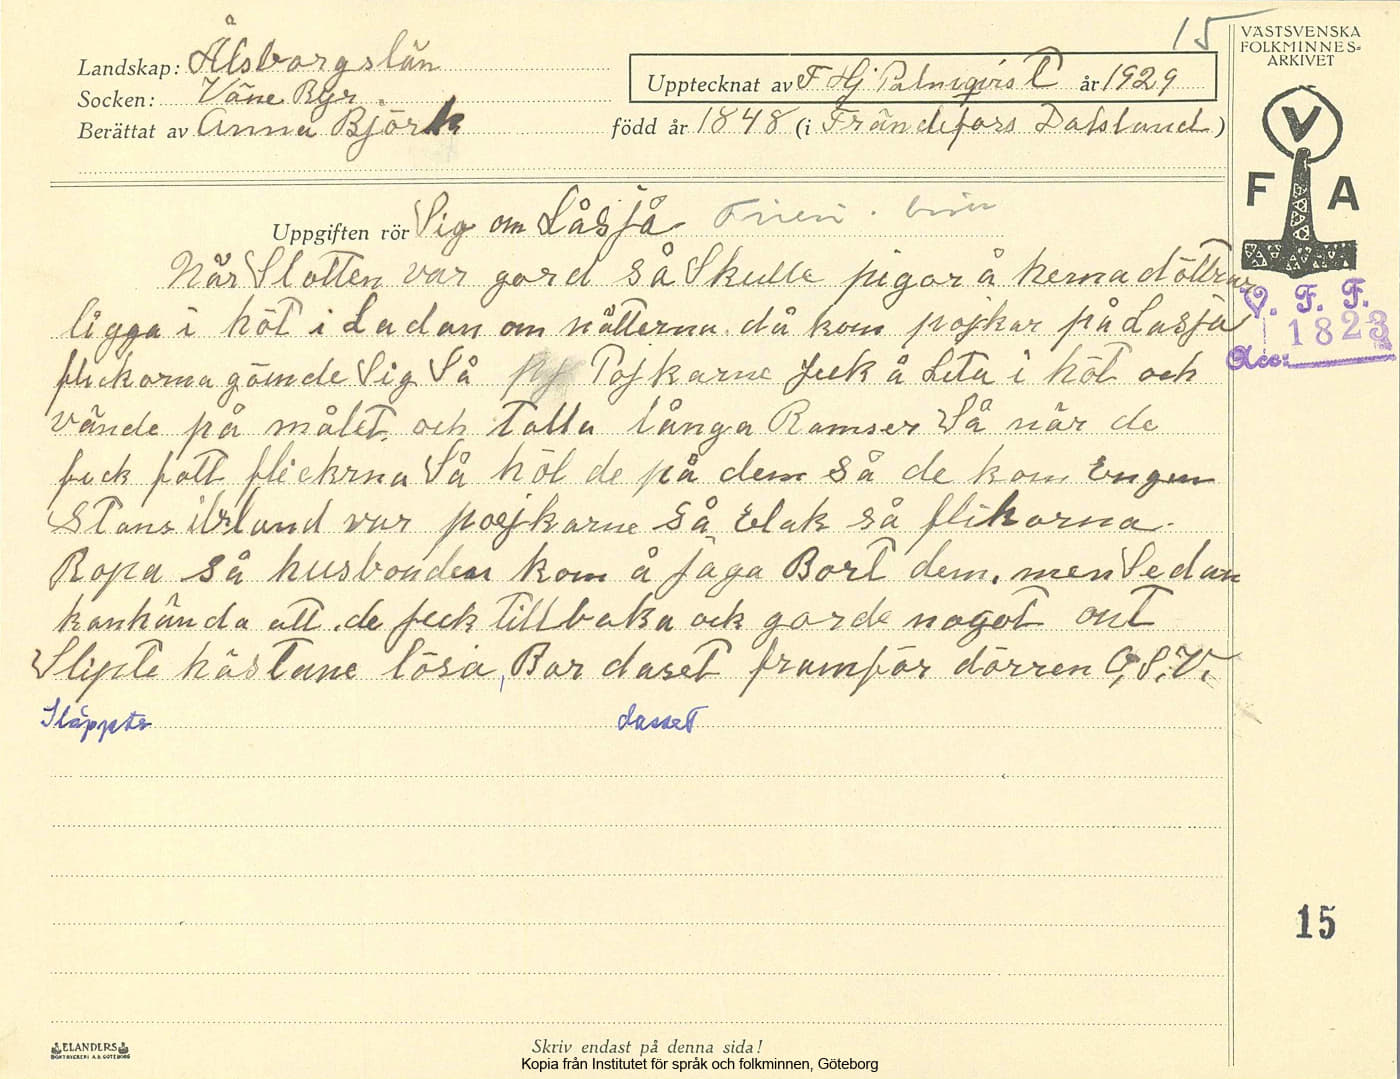 15
VÄSTSVENSKA
FOLKMINNES=
ARKIVET
Landskap: Älsborgslän
Socken: Väne Ryr
Upptecknat av F Hj Palmqvist år 1929
Berättat av Anna Björk född år 1848 (i Frändefors Dalsland)
V
F A
Uppgiften rör Sig om Låsjå Frieri
När Slotten var gord så Skulle pigor å hemadöttrar
ligga i höt i Ladan om nätterna. då kom pojkar på Lasja
flickorna gömde Sig Så Pojkarne feck å Leta i höt och
vände på målet. och talla långa Ramser Så när de
feck fatt flickrna Så höl de på dem så de kom Engen
Stans ibland var poejkarne så elak så flikorna.
Ropa så husbonden kom å jaga Bort dem, men Sedan
kanhända att de feck tillbaka ock gorde nogot ont
Slipte hästane lösa, Bar daset framför dörren O,S,V,
Släppte dasset
V. F. F.
1823
Acc:
15
ELANDERS
BOKTRYCKERI A.B. GÖTEBORG
Skriv endast på denna sida!
Kopia från Institutet för språk och folkminnen, Göteborg